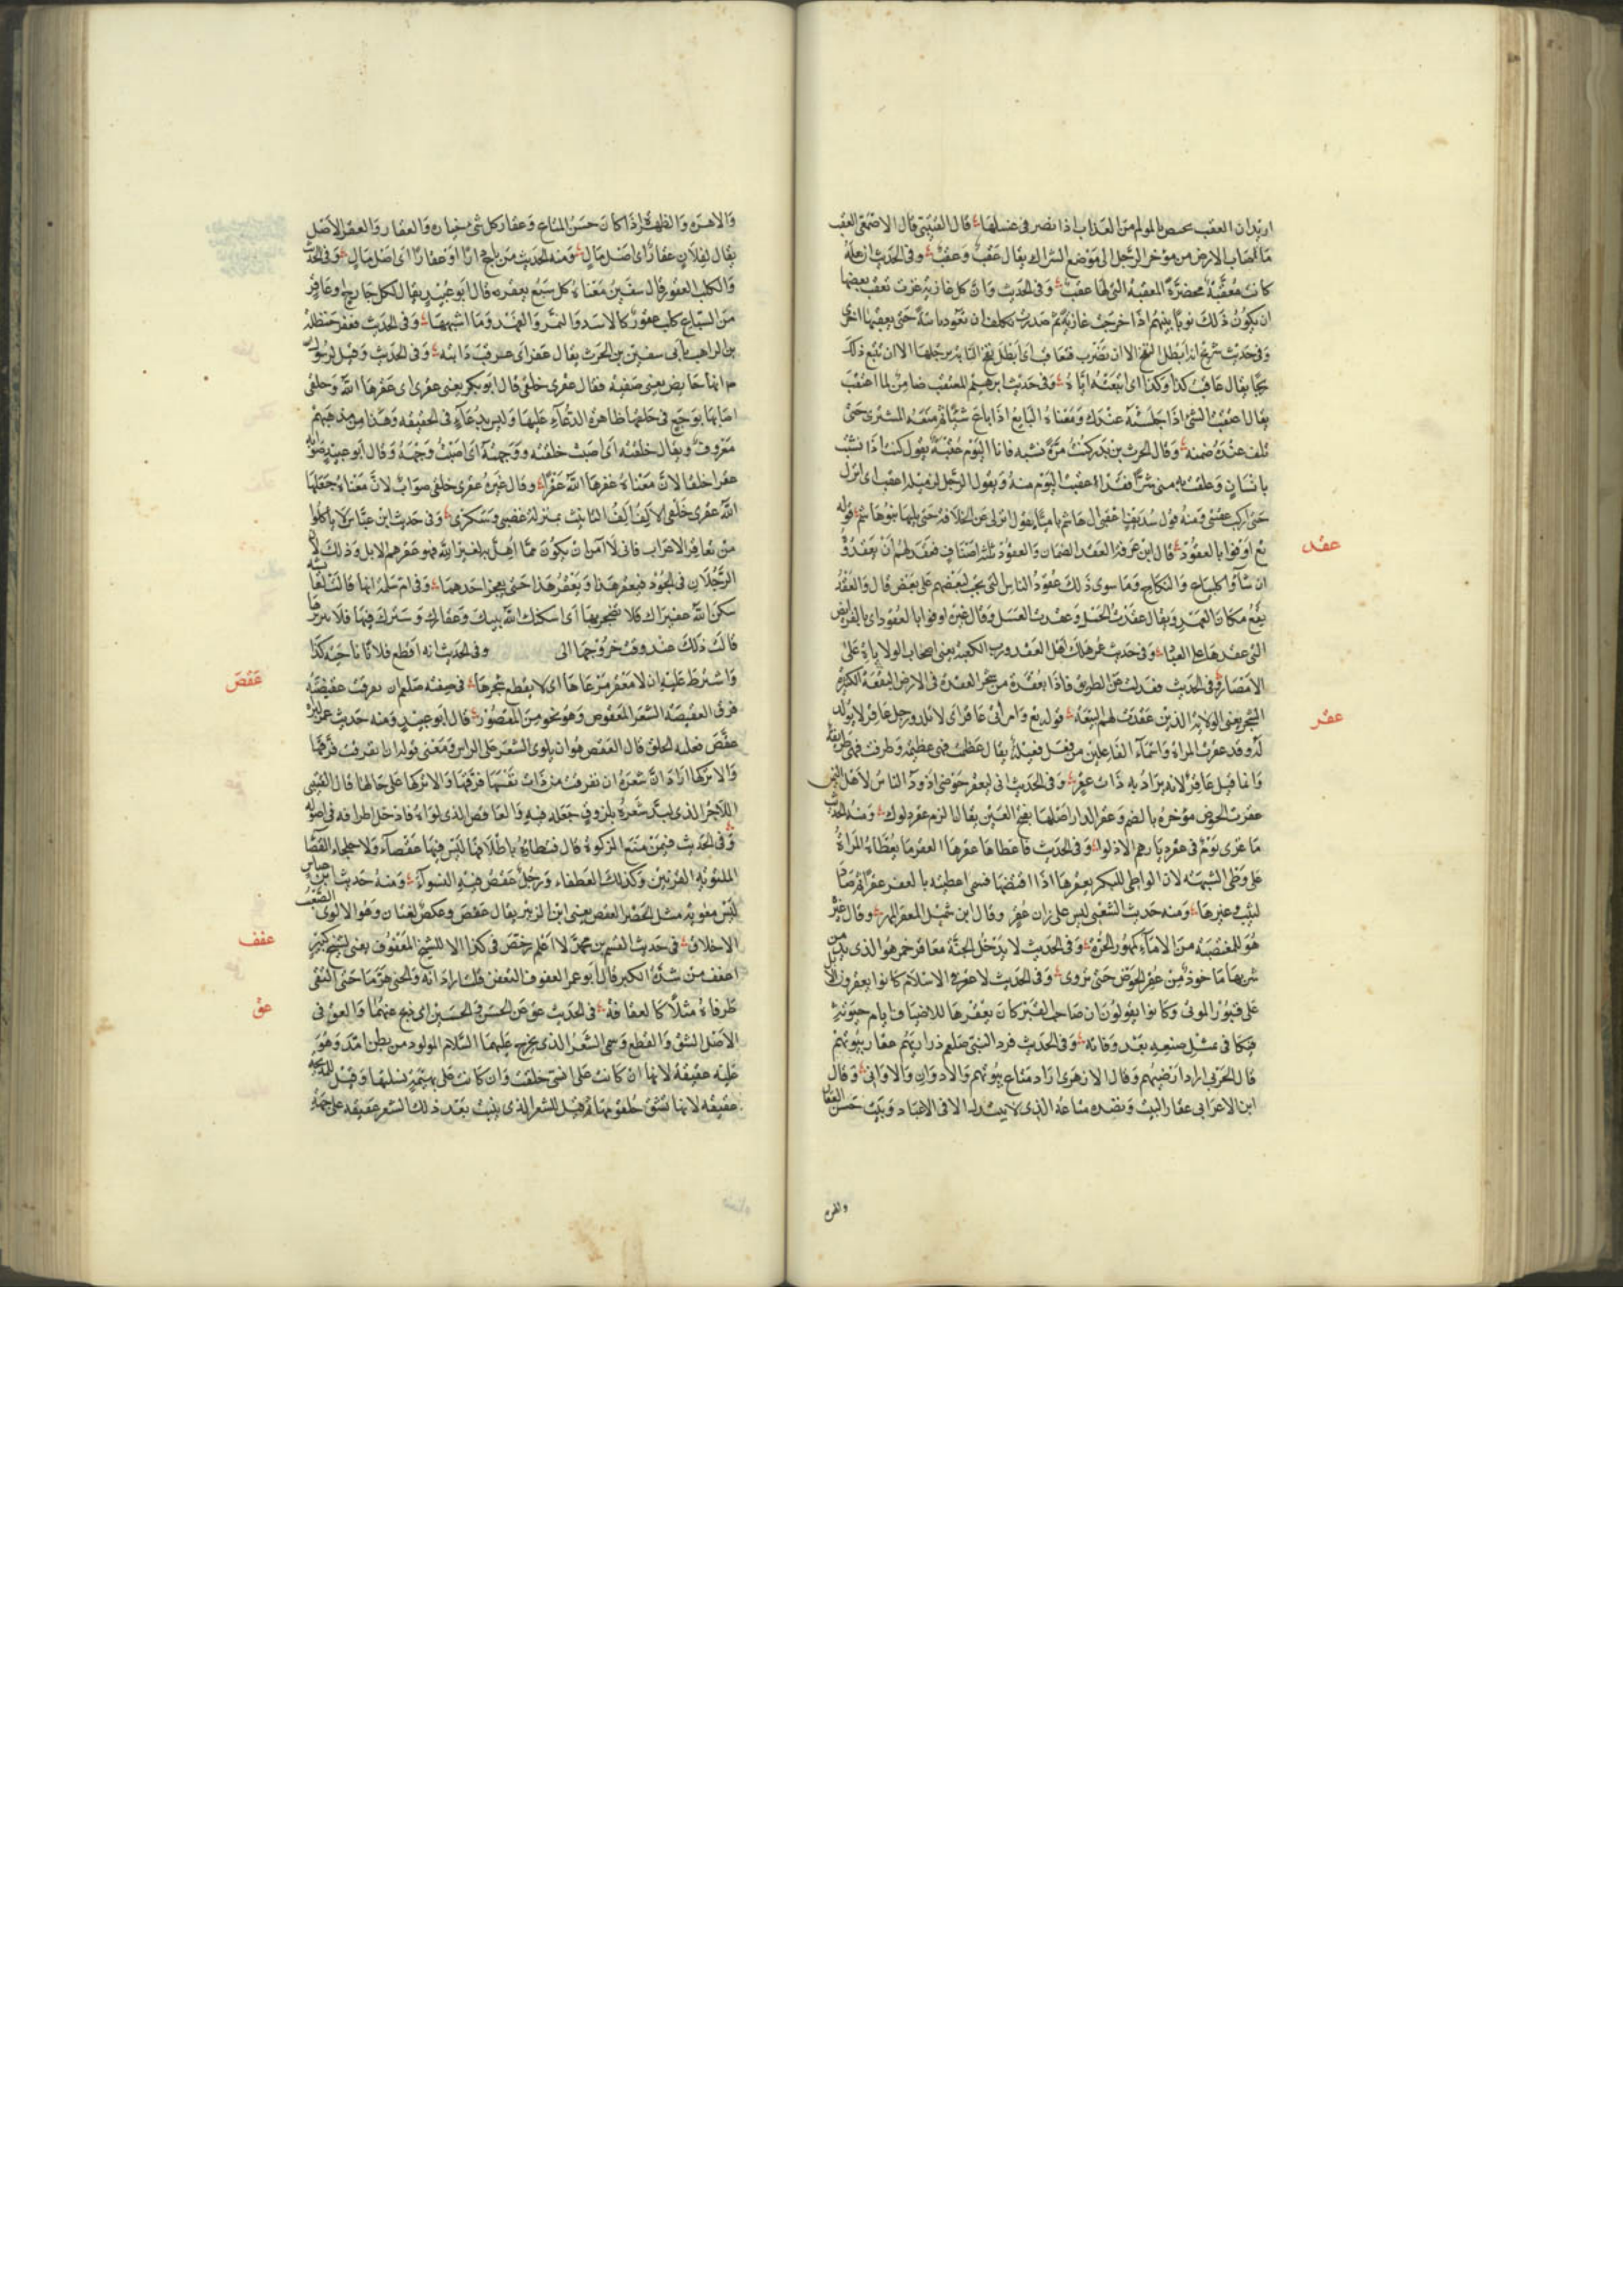 اريد ان العقب يخص بالمولم من العذاب اذا قصر فى غسلها قال القتيبى قال الاصمعى العقب
ما اصاب الارض من مؤخر الرجل الى موضع الشراك يقال عقب وعقب وفى الحديث ان نعله
كانت معقبة مخصرة المعقبة التى لها عقب وفى الحديث وان كل غازية غزت تعقب بعضها
ان يكون ذلك نوبا بينهم اذا خرجت غازية ثم صدرت لم تكلف ان تعود ثانية حتى يعقبها اخرى
وفى حديث شريح انه ابطل النفح الا ان تضرب فتعاقب اى ابطل نفح الدابة برجلها الا ان تتبع ذلك
رمحا يقال عاقب كذا وكذا اى اتبعته اياه وفى حديث ابرهيم المعتقب ضامن لما اعتقب
يقال اعتقبت الشئ اذا حبسته عندك ومعناه البايع اذا باع شيئا ثم منعه المشترى حتى
تلف عنده ضمنه وقال الحرث بن بدر كنت مرة نشبه فانا اليوم عقبة يقول كنت اذا نشبت
بانسان وعلقت به لقى منى شرا فقد اعقبت اليوم منه ويقول الرجل لزميله اعقب اى انزل
حتى اركب عقبتى ومنه قول سديف اعقبى ال هاشم يا ميا يقول انزلى عن الخلافة حتى يليها بنو هاشم قوله
عقد
تع اوفوا بالعقود قال ابن عرفة العقد الضمان والعقود ثلثة اصناف فعقد لهم ان يعقدوه
ان شآوا كالبياع والنكاح وما سوى ذلك عقود الناس التى تجب لبعضهم على بعض قال والعقد
يقع مكان العهد ويقال عقدت الحبل وعقدت العسل وقال غيره اوفوا بالعقود اى بالفرايض
التى عقدها على العباد وفى حديث عمر هلك اهل العقد ورب الكعبة يعنى اصحاب الولايات على
الامصار وفى الحديث فعدلت عن الطريق فاذا بعقدة من شجر العقدة فى الارض البقعة الكثيرة
عقر
الشجر يعنى الولاة الذين عقدت لهم البيعة قوله تع وامراتى عاقر اى لا تلد ورجل عاقر لا يولد
له وقد عقرت المراة واسماء الفاعلين من فعل فعيلة يقال عظمت فهى عظيمة وظرفت فهى ظريفة
وانما قيل عاقر لانه يراد به ذات عقر وفى الحديث انى لبعقر حوضى اذود الناس لاهل اليمن
عقر الحوض مؤخره بالضم وعقر الدار اصلها بفتح العين يقال الزم عقر دلوك ومنه الحديث
ما غزى قوم فى عقر ديارهم الا ذلوا وفى الحديث فاعطاها عقرها العقر ما يعطاه المراة
على وطى الشبهة لان الواطى للبكر يعقرها اذا افتضها فسمى ما تعطيه بالعقر عقرا ثم صار
للثيب وغيرها ومنه حديث الشعبى ليس على زان عقر وقال ابن شميل العقر المهر وقال غيره
هو للمغتصبة من الاماء كمهور الحرة وفى الحديث لا يدخل الجنة معاقر خمر هو الذى يدمن
شربها ماخوذ من عقر الحوض حتى تروى وفى الحديث لا عقر فى الاسلام كانوا يعقرون الابل
على قبور الموتى وكانوا يقولون ان صاحب القبر كان يعقرها للاضياف ايام حيوته
فيكافى بمثل صنيعه بعد وفاته وفى الحديث فرد النبى صلعم ذراريهم عقار بيوتهم
قال الحربى اراد ارضيهم وقال الازهرى اراد متاع بيوتهم والادوات والاوانى وقال
ابن الاعرابى عقار البيت ونضده متاعه الذى لا يبتذل الا فى الاعياد وبيت حسن العقار
والاهرة والظهرة اذا كان حسن المتاع وعقار كل شئ خياره والعقار والعقر الاصل
يقال لفلان عقار اى اصل مال ومنه الحديث من باع دارا او عقارا اى اصل مال وفى الحديث
والكلب العقور قال سفين معناه كل سبع يعقر قال ابو عبيد يقال لكل جارح او عاقر
من السباع كلب عقور كالاسد والنمر والفهد وما اشبهها وفى الحديث فعقر حنظلة
بن الراهب بابى سفين بن الحرث يقال عقر اى عرقب دابته وفى الحديث وقيل لرسول
انها حايض يعنى صفية فقال عقرى حلقى قال ابو بكر يعنى عقرى اى عقرها الله وحلقى
اصابها بوجع فى حلقها ظاهره الدعاء عليها وليس بدعاء فى الحقيقة وهذا من مذهبهم
معروف ويقال حلقته اى اصبت حلقه ووجهته اى اصبت وجهه وقال ابو عبيد صوابه
عقرا حلقا لان معناه عقرها الله عقرا وقال غيره عقرى حلقى صواب لان معناه جعلها
الله عقرى حلقى الالف الف التانيث بمنزلة غضبى وسكرى وفى حديث ابن عباس لا تاكلوا
من تعاقر الاعراب فانى لا آمن ان يكون مما اهل به لغير الله فهو عقرهم الابل وذلك ان
الرجلان فى الجود فيعقر هذا ويعقر هذا حتى يعجز احدهما وفى ام سلمة انها قالت لعايشة
سكن الله عقيراك فلا تصحريها اى اسكنك الله بيتك وعقارك وسترك فيها فلا تبرزيها
قالت ذلك عند وقت خروجها الى وفى الحديث انه اقطع فلانا ناحية كذا
عقص
واشترط عليه ان لا يعقر مرعاها اى لا يقطع شجرها فى صفته صلعم ان انفرقت عقيصته
فرق العقيصة الشعر المعقوص وهو نحو من المضفور قال ابو عبيد ومنه حديث عمر من لبد او
عقص فعليه الحلق قال العقص هو ان يلوى الشعر على الراس ومعنى قوله ان انفرقت فرقها
والا تركها اراد ان شعره ان تفرقت من ذات نفسها فرقها والا تركها على حالها قال القتيبى
وفى الحديث فيمن منع الزكوة قال فتطاؤه باظلافها ليس فيها عقصاء ولا جلحاء العقصا
الملتوية القرنين وكذلك العطفاء ورجل عقص فيه التواء ومنه حديث ابن عباس
ليس معوية مثل الحصر العقص يعنى ابن الزبير يقال عقص وعكص لغتان وهو الالوى الصعب
عقف
الاخلاق فى حديث القسم بن محمد لا اعلم رخص فى كذا الا للشيخ المعقوف يعنى لشيخ كبير
اعقف من شدة الكبر قال ابو عمر العقوف التعقف قلت اراد انه انحنى هرما حتى التقى
عق
طرفاه مثلا كالعقافة فى الحديث عق عن الحسن والحسين اى ذبح عنهما والعق فى
الاصل الشق والقطع وسمى الشعر الذى يخرج عليهما السلام المولود من بطن امه وهو
عليه عقيقة لانها ان كانت على انسى حلقت وان كانت على بهيمة نسلتها وقيل للذبيحة
عقيقة لانها تشق حلقومها ثم قيل للشعر الذى ينبت بعد ذلك الشعر عقيقة على جهة